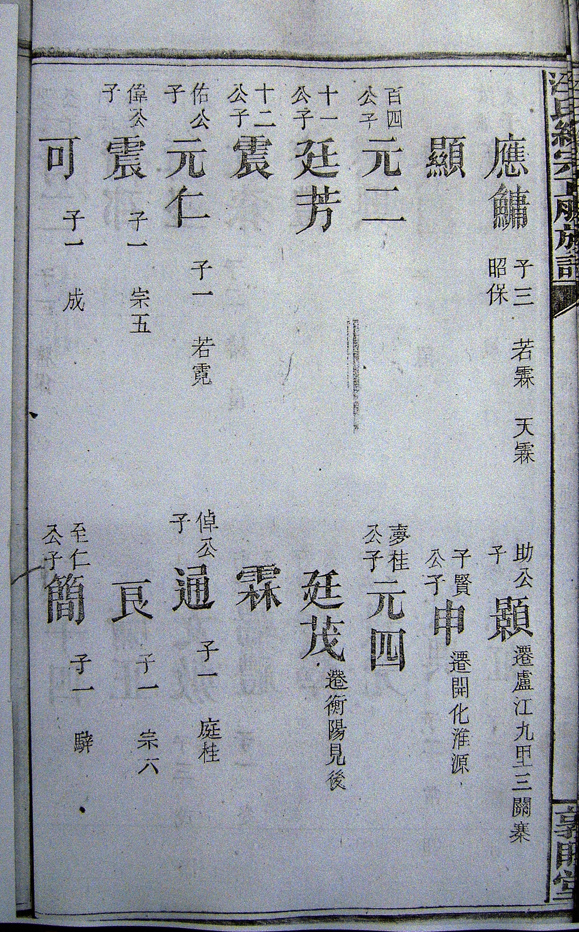 汪氏統宗正脈族譜
應鏞 子三 若霖 天霖 昭保
助公子 遷廬江九甲三關寨
顯
子賢公子 申 遷開化淮源
百四公子 元二
夢桂公子 元四
十一公子 廷芳
廷茂 遷衡陽見後
十二公子 震
霖
佑公子 元仁 子一 若霓
倬公子 通 子一 庭桂
偉公子 震 子一 宗五
艮 子一 宗六
可 子一 成
至仁公子 簡 子一 騂